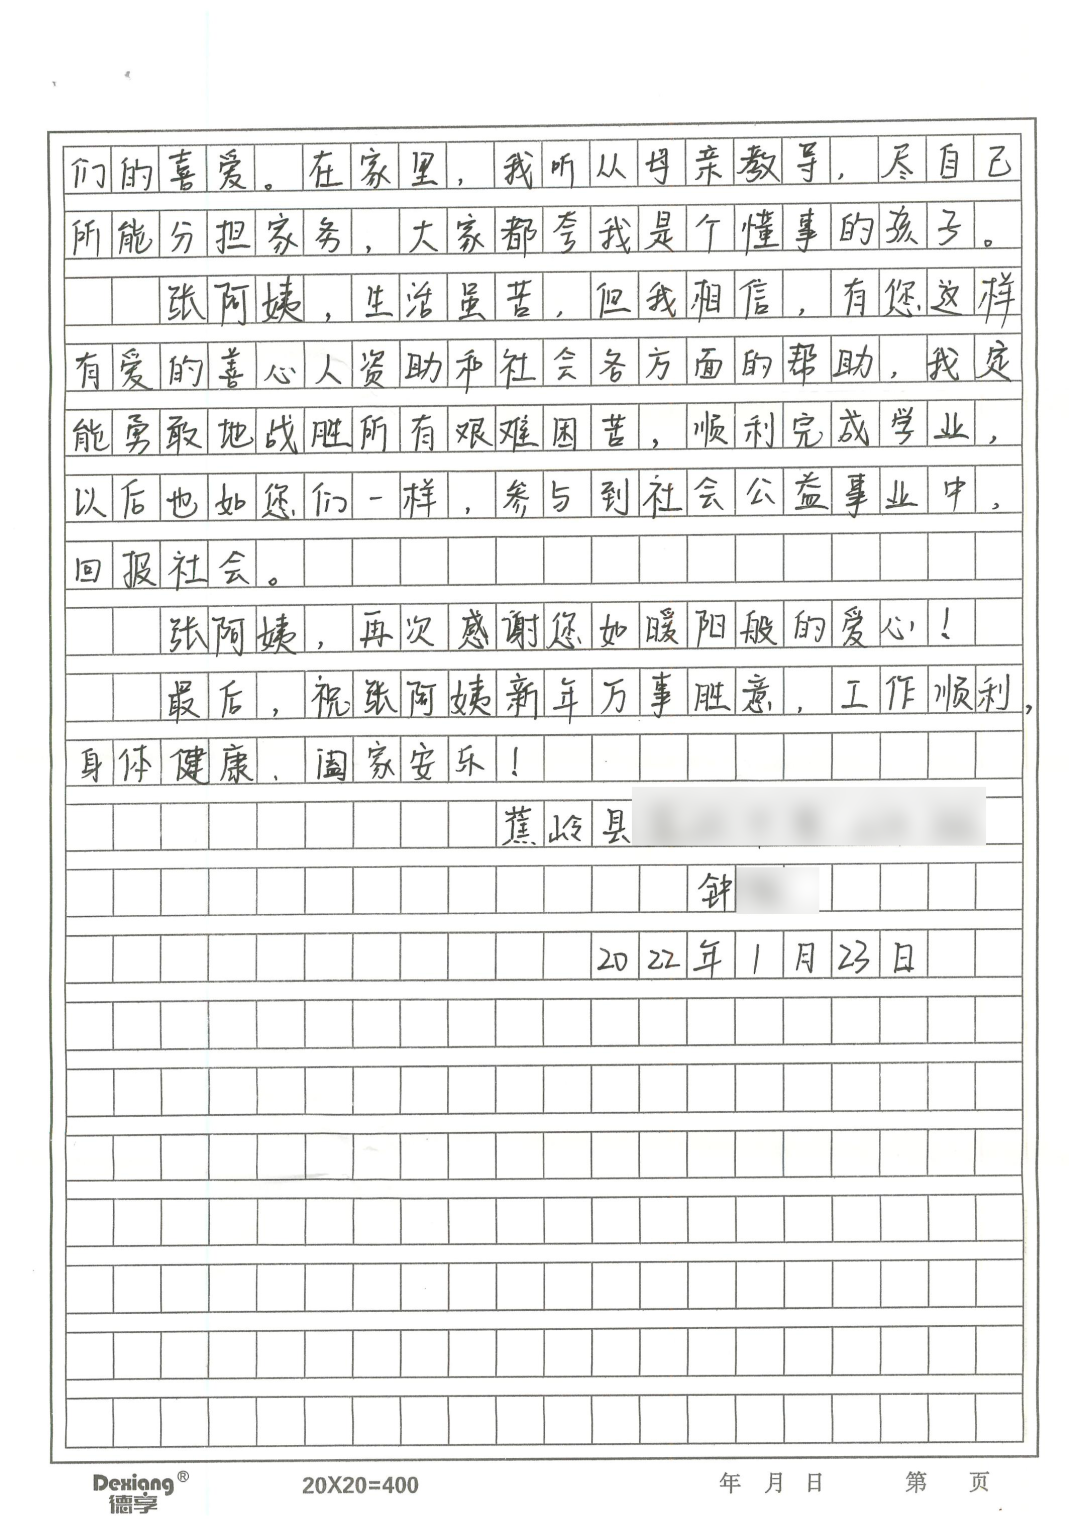 们的喜爱。在家里，我听从母亲教导，尽自己
所能分担家务，大家都夸我是个懂事的孩子。
张阿姨，生活虽苦，但我相信，有您这样
有爱的善心人资助和社会各方面的帮助，我定
能勇敢地战胜所有艰难困苦，顺利完成学业，
以后也如您们一样，参与到社会公益事业中，
回报社会。
张阿姨，再次感谢您如暖阳般的爱心！
最后，祝张阿姨新年万事胜意，工作顺利，
身体健康、阖家安乐！
蕉岭县
钟
2022年1月23日
Dexiang®
德享
20X20=400
年 月 日 第 页